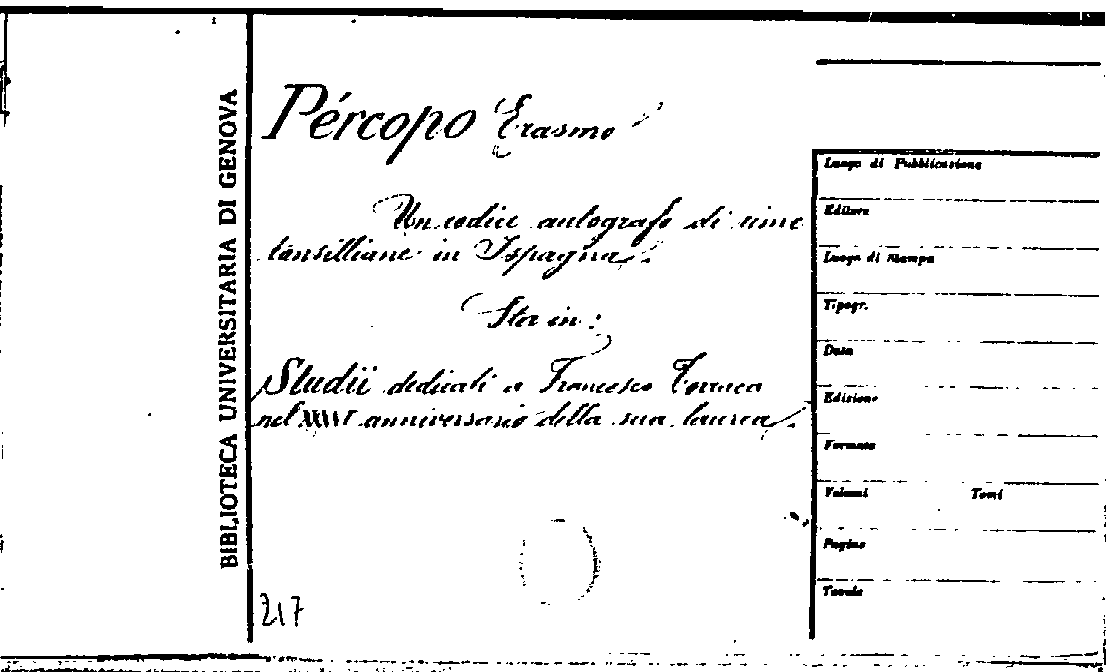 BIBLIOTECA UNIVERSITARIA DI GENOVA
Pércopo Erasmo
Un codice autografo di rime
tansilliane in Ispagna.
Sta in:
Studii dedicati a Francesco Torraca
nel XXXVI anniversario della sua laurea.
217
Luogo di Pubblicazione
Editore
Luogo di Stampa
Tipogr.
Data
Edizione
Formato
Volumi Tomi
Pagine
Tavole